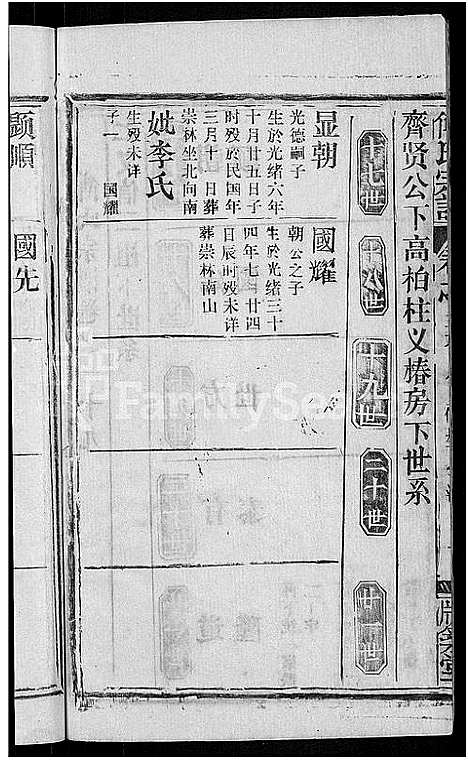 齊贤公下高柏柱义椿房下世系
十七世
十八世
十九世
二十世
廿一世
显朝
光德嗣子
生於光绪六年
十月廿五日子
时殁於民国年
三月十日葬
崇林坐北向南
妣李氏
生殁未详
子一 國耀
國耀
朝公之子
生於光绪三十
四年七月廿四
日辰时殁未详
葬崇林南山
顕順
國先
FamilySe